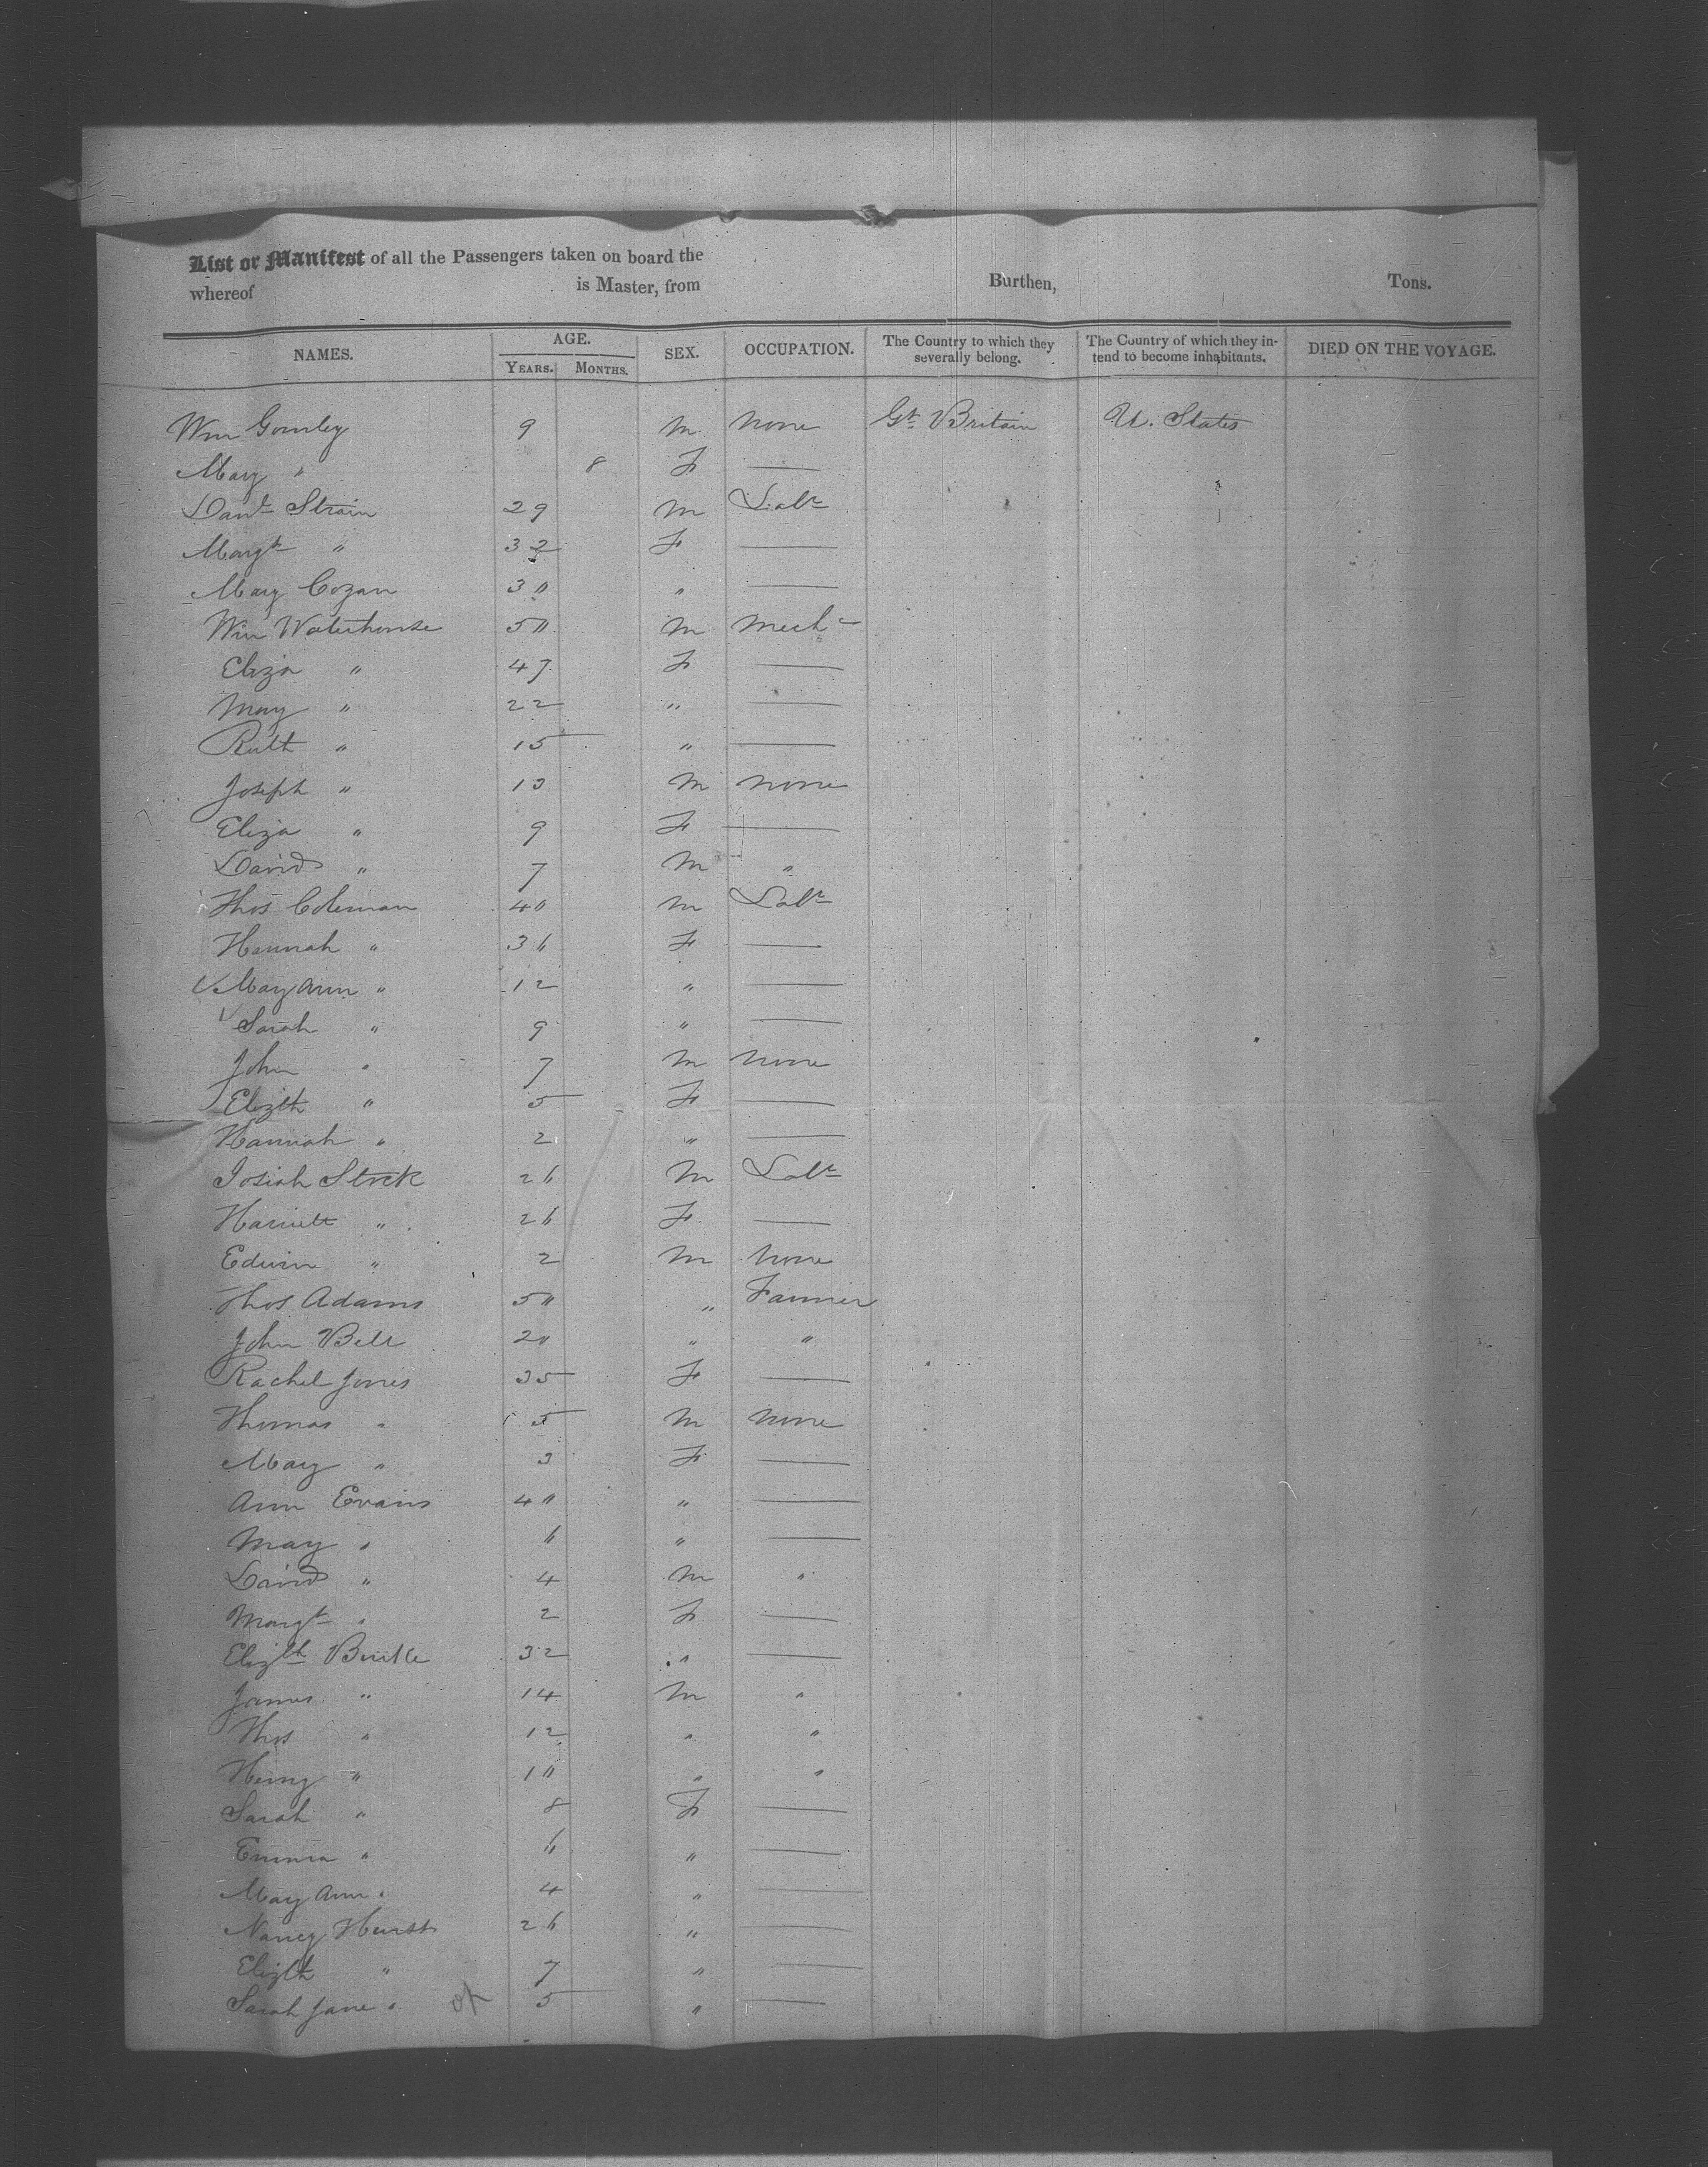 List or Manifest of all the Passengers taken on board the
whereof is Master, from Burthen, Tons.
NAMES. AGE. YEARS. MONTHS. SEX. OCCUPATION. The Country to which they severally belong. The Country of which they intend to become inhabitants. DIED ON THE VOYAGE.
Wm Gormley 9 M none Gt Britain U. States
Mary " 8 F —
Danl Strain 29 M Labr
Margt " 32 F —
Mary Cozan 30 " —
Wm Waterhouse 50 M Mech
Eliza " 47 F —
Mary " 22 " —
Ruth " 15 " —
Joseph " 13 M none
Eliza " 9 F —
David " 7 M "
Thos Coleman 40 M Labr
Hannah " 36 F —
Mary Ann " 12 " —
Sarah " 9 " —
John " 7 M none
Elizth " 5 F —
Hannah " 2 " —
Josiah Stock 26 M Labr
Harriett " 26 F —
Edwin " 2 M none
Thos Adams 50 " Farmer
John Bell 20 " "
Rachel Jones 35 F —
Thomas " 5 M none
Mary " 3 F —
Ann Evans 40 " —
Mary " 6 " —
David " 4 M "
Margt " 2 F —
Elizth Burke 32 " —
James " 14 M "
Thos " 12 " "
Henry " 10 " "
Sarah " 8 F —
Emma " 6 " —
Mary Ann " 4 " —
Nancy Hurst 26 " —
Elizth " 7 " —
Sarah Jane " 5 " —